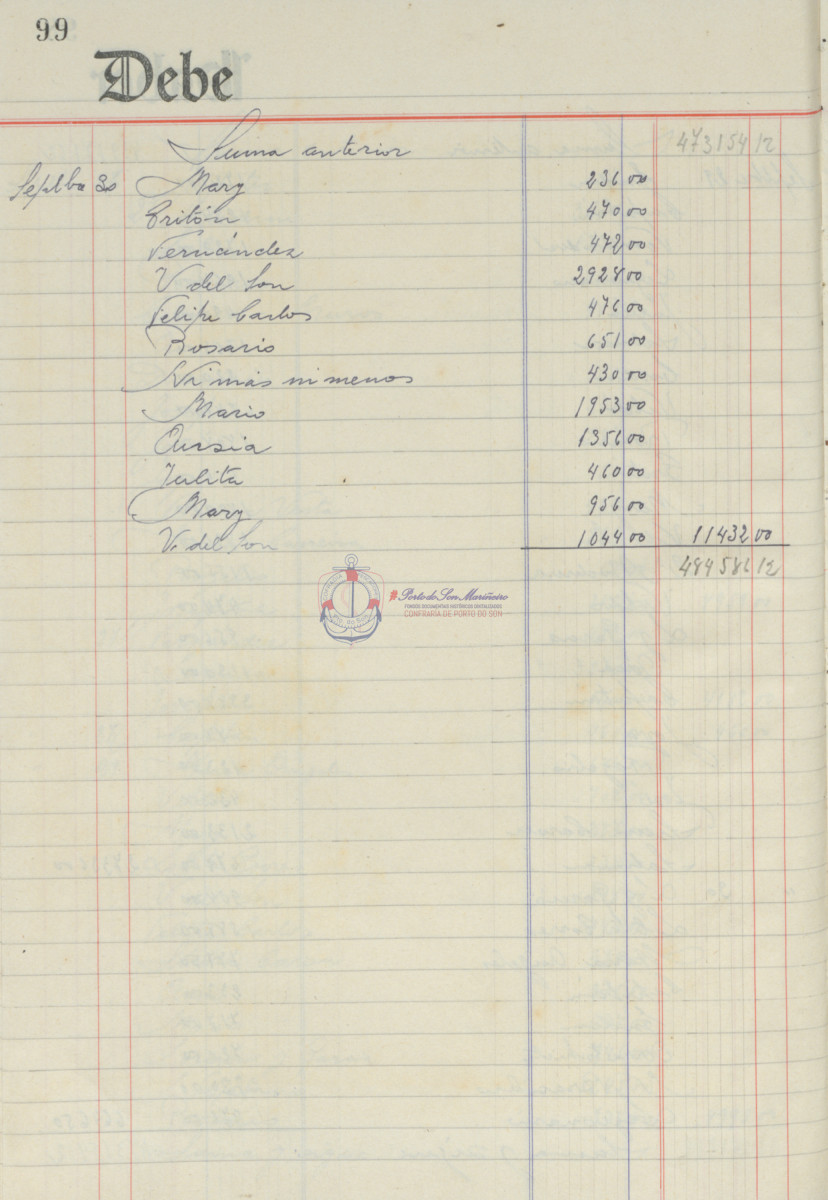 99
Debe
Suma anterior 473154 12
Sepbre 30 Mary 236 00
470 00
Fernández 472 00
V del Son 2928 00
Felipe Carlos 476 00
Rosario 651 00
Ni más ni menos 430 00
Mario 1953 00
1356 00
Julita 460 00
Mary 956 00
V. del Son 1044 00 11432 00
484586 12
Porto do Son Mariñeiro
FONDOS DOCUMENTAIS HISTÓRICOS DIXITALIZADOS
CONFRARÍA DE PORTO DO SON